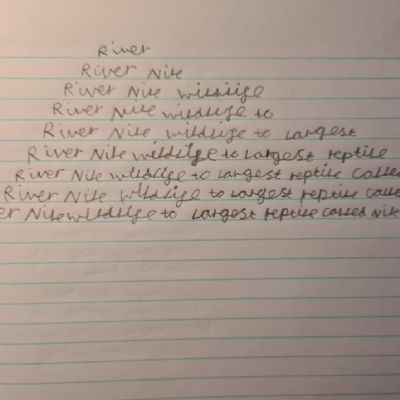 River
River Nile
River Nile wildlige
River Nile wildlige to
River Nile wildlige to largest
River Nile wildlige to largest reptile
River Nile wildlige to largest reptile called
River Nile wildlige to largest reptile called
er Nile wildlige to largest reptile called Nile